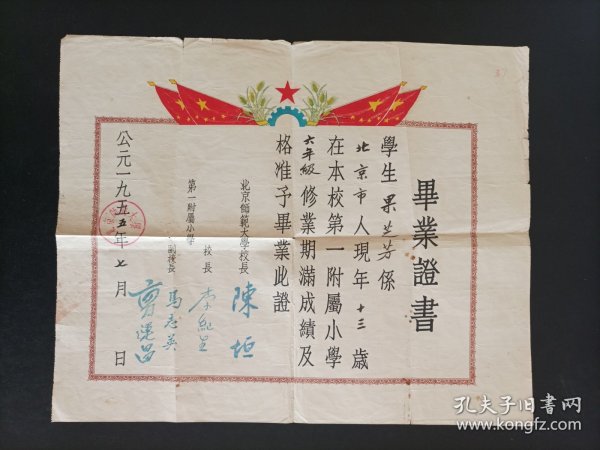 畢業證書
學生果芝芳係
北京市人現年十三歲
在本校第一附屬小學
六年級修業期滿成績及
格准予畢業此證
北京師範大學校長 陳垣
第一附屬小學
校長
副校長 馬志英
公元一九五五年七月 日
孔夫子旧书网
www.kongfz.com